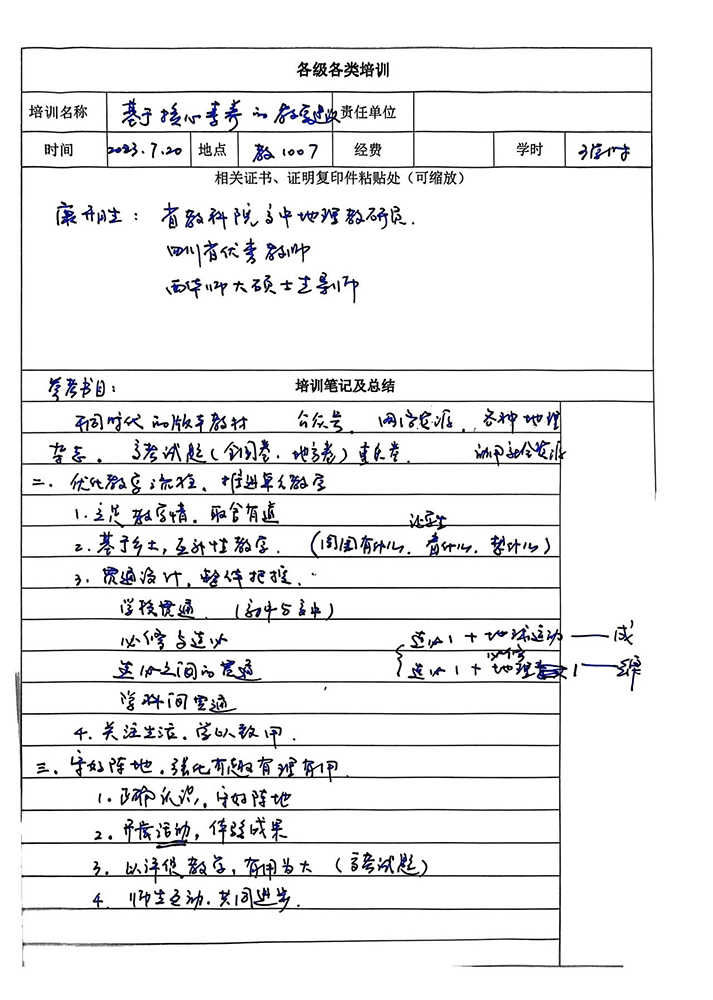 各级各类培训
培训名称 基于核心素养的教学 责任单位
时间 2023.7.20 地点 教1007 经费 学时
相关证书、证明复印件粘贴处（可缩放）
康升胜：省教科院高中地理教研员.
四川省优秀教师
西华师大硕士生导师
参考书目： 培训笔记及总结
不同时代的版本教材 公众号. 网络资源. 各种地理
杂志. 高考试题（全国卷. 地方卷）重庆卷. 社会资源
二. 优化教学流程. 推进单元教学
1. 立足教学情. 取舍有道
让学生
2. 基于乡土, 互补性教学. （周围有什么. 看什么. 想什么）
3. 贯通设计, 整体把握.
学段贯通. （初中与高中）
必修与选必 选必1 + 地球运动 —— 成
必修
选必之间的贯通 选必1 + 地理 1 ——
学科间贯通
4. 关注生活. 学以致用.
三. 守好阵地. 强化有趣有理有用.
1. 正确认识, 守好阵地
2. 开展活动, 体验成果
3. 以评促教学, 有用为大（高考试题）
4. 师生互动. 共同进步.